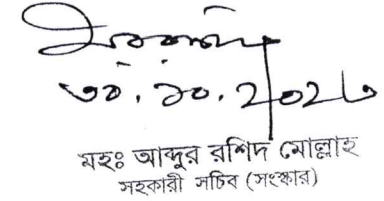 ৩১.১০.২০২৩
মহঃ আব্দুর রশিদ মোল্লাহ
সহকারী সচিব (সংস্কার)